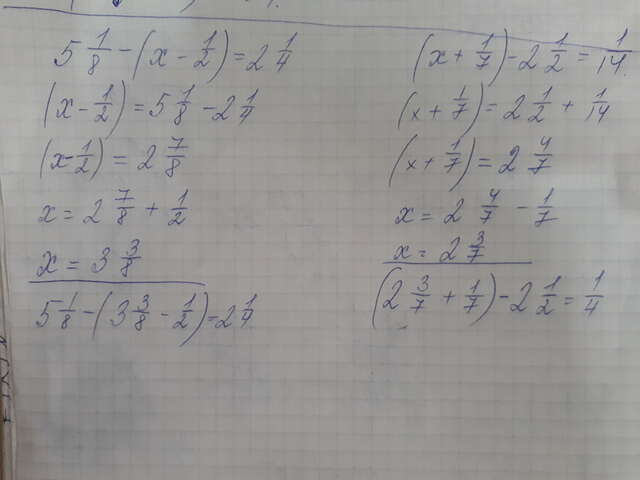 5 1/8 - (x - 1/2) = 2 1/4
(x - 1/2) = 5 1/8 - 2 1/4
(x - 1/2) = 2 7/8
x = 2 7/8 + 1/2
x = 3 3/8
5 1/8 - (3 3/8 - 1/2) = 2 1/4
(x + 1/7) - 2 1/2 = 1/14
(x + 1/7) = 2 1/2 + 1/14
(x + 1/7) = 2 4/7
x = 2 4/7 - 1/7
x = 2 3/7
(2 3/7 + 1/7) - 2 1/2 = 1/4